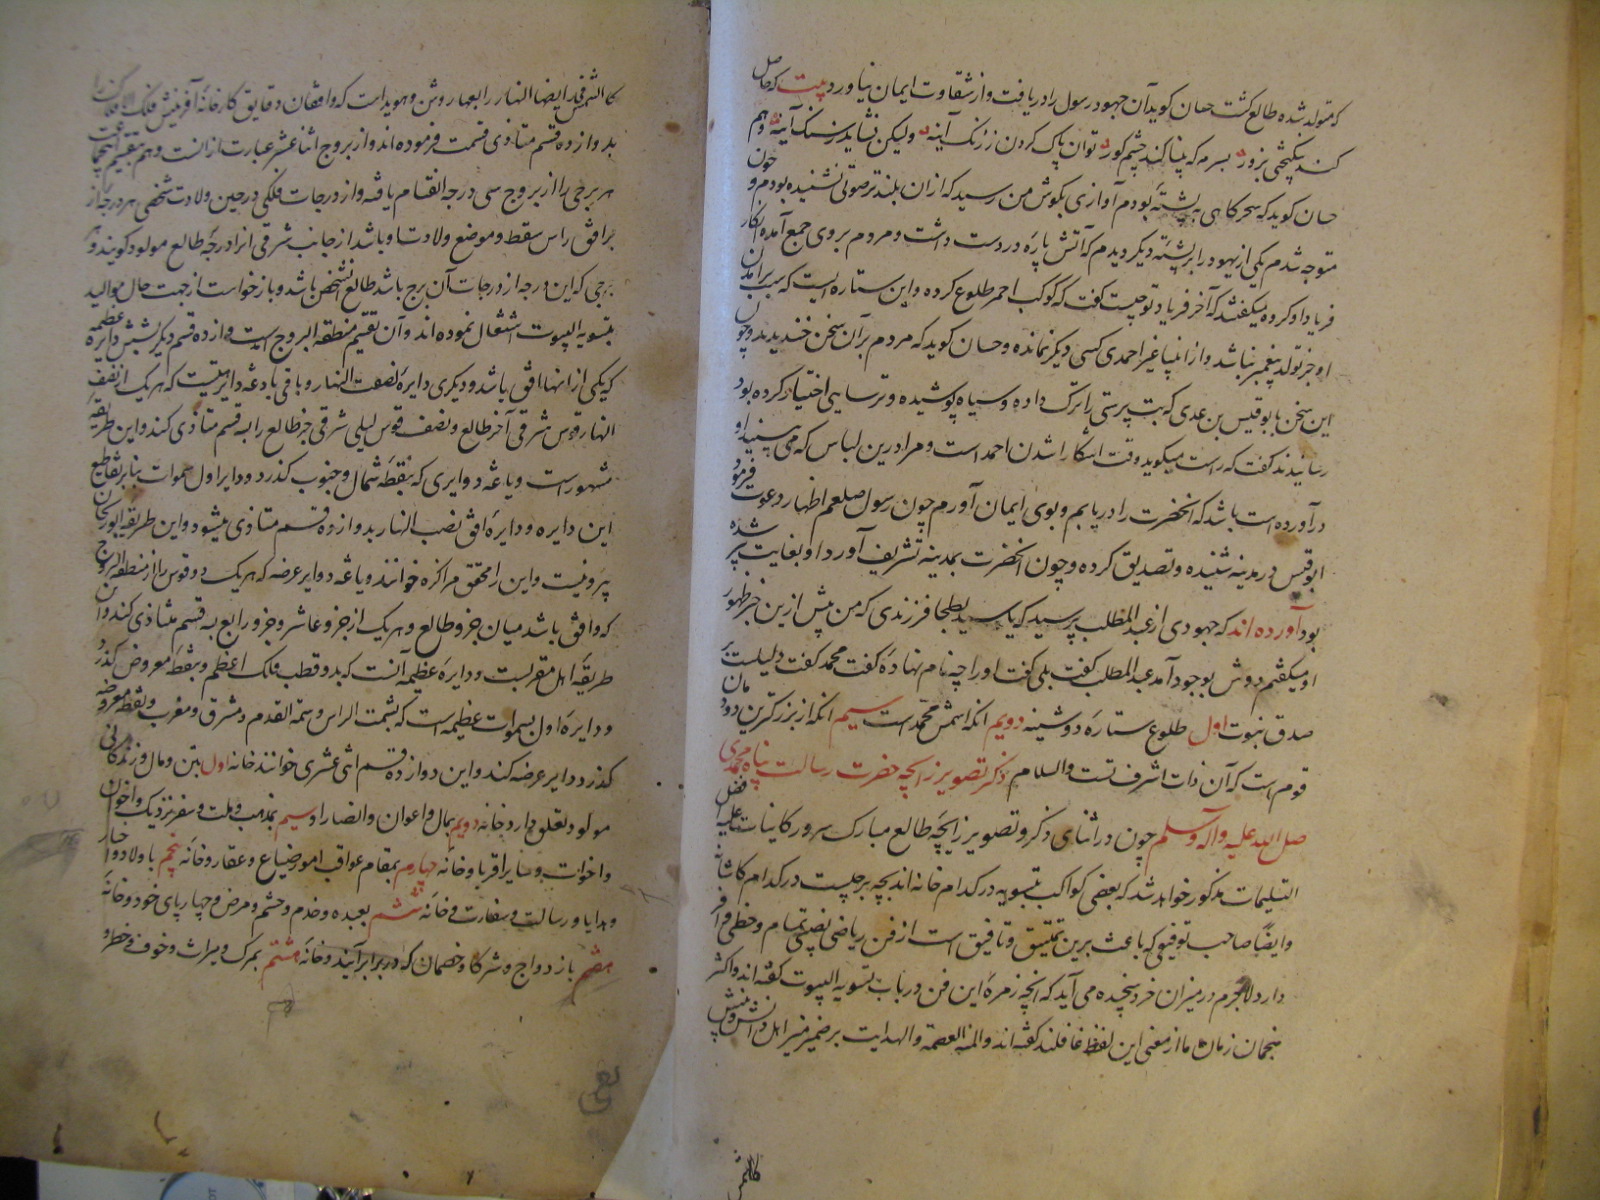 که متولد شده طالع گشت حسان کوید آن جهود رسول را دریافت و از شقاوت ایمان نیاورد بیت که حاصل
کند نیکبختی بزور بسرمه که بینا کند چشم کور توان پاک کردن ز زنگ آینه ولیکن نشاید ز سنگ آینه و هم
حسان کوید که سحرکاهی بر پشته بودم آوازی بکوش من رسید که از ان بلندتر صوتی نشنیده بودم و چون
متوجه شدم یکی از یهود را بر پشته دیکر دیدم که آتش پاره در دست داشت و مردم بر وی جمع آمده انکار
فریاد او کرده میکفتند که آخر فریاد تو چیست کفت که کوکب احمر طلوع کرده و این ستاره ایست که سبب برآمدن
او جز تولد پیغمبر نباشد و از انبیا غیر احمدی کسی دیکر نمانده و حسان کوید که مردم بر آن سخن خندیدند و چون
این سخن بابو قیس بن عدی که بت پرستی را ترک داده و سیاه پوشیده و ترسایی اختیار کرده بود
رسانیدند کفت که راست میکوید وقت اشکارا شدن احمد است و مرا درین لباس که می بینید او
در آورده است باشد که آنحضرت را دریابم و بوی ایمان آورم چون رسول صلعم اظهار دعوت فرمود
ابو قیس در مدینه شنیده و تصدیق کرده و چون آنحضرت بمدینه تشریف آورد او بغایت پیر شده
بود آورده اند که جهودی از عبد المطلب پرسید که یا سید بطحا فرزندی که من پیش ازین خبر ظهور
او میکفتم دوش بوجود آمد عبد المطلب کفت بلی کفت او را چه نام نهاده کفت محمد کفت دلیلست بر
صدق نبوت اول طلوع ستاره دوشینه دویم انکه اسمش محمد است سیم انکه از بزرکترین دودمان
قوم است که آن ذات اشرف تست والسلام ذکر تصویر زایچه حضرت رسالت پناه محمدی
صلی الله علیه وآله وسلم چون در اثنای ذکر و تصویر زایچه طالع مبارک سرور کاینات علیه افضل
التسلیمات مذکور خواهد شد که بعضی کواکب بتسویه در کدام خانه اند بچه برجیست در کدام کاشانه
وایضا صاحب توفیقی که باعث برین تنسیق و تافیق است از فن ریاضی نصیبی تمام و حظی وافر
دارد لاجرم در میزان خرد سنجیده می آید که انچه زمره این فن در باب تسویه البیوت کفته اند و اکثر
منجمان زمان ما از معنی این لفظ غافلند کفته اند والمنه العصمة والهدایت بر ضمیر منیر اهل دانش و بینش
کالشمس
کالشمس فی رابعة النهار روشن و هویداست که واقفان دقایق کارخانه آفرینش فلک
بدوازده قسم متساوی قسمت فرموده اند و از بروج اثنا عشر عبارت از انست و هم بتقسیم
هر برجی را از بروج سی درجه انقسام یافته و از درجات فلکی در حین ولادت شخصی هر درجه از
بر افق راس سقط و موضع ولادت او باشد از جانب شرقی انرا درجه طالع مولود کویند و هر
برجی که این درجه از درجات آن برج باشد طالع آن شخص باشد و باز خواست از جهت حال موالید
بتسویه البیوت اشتغال نموده اند و آن تقسیم منطقه البروج است دوازده قسم دیکر بشش دایره عظیمه
که یکی از انها افق باشد و دیکری دایره نصف النهار و باقی یا دغه دایریست که هریک از نصف
النهار قوس شرقی آخر طالع و نصف قوس لیلی شرقی جز طالع را به قسم متساوی کند و این طریقه
مشهور است و یا عه دوایری که بنقطه شمال و جنوب کذرد و دایر اول سموات بنا بر تقاطع
این دایره و دایره افق نصب النهار بدوازده قسم متساوی میشود و این طریقه ابوریحان
بیرونیست و این را محقق مراکزه خوانند و یا عه دوایر عرضه که هریک دو قوس را از منطقه البروج
که واقع باشد میان جزو طالع و هریک از جزو عاشر و جزو رابع به قسم متساوی کند و آن
طریقه اهل مغربست و دایره عظیمه آنست که بدو قطب فلک اعظم و بنقطه مفروض کذرد
و دایره اول سموات عظیمه است که بسمت الراس و سمة القدم و مشرق و مغرب و نقطه مفروضه
کذرد و دایر عرضه کند و این دوازده قسم اثنی عشری خوانند خانه اول بتن و مال و زندکانی
مولود تعلق دارد خانه دویم بمال و اعوان و انصار او سیم بمذهب و ملت و سفر نزدیک و اخوان
واخوات و سایر اقربا و خانه چهارم بمقام عواقب امور ضیاع و عقار و خانه پنجم با ولاد و اخبار
و هدایا و رسالت و سفارت و خانه ششم بعبده و خدم و حشم و مرض و چهارپای خود و خانه
هفتم بازدواج و شرکا و خصمان که در برابر آیند و خانه هشتم بمرک و میراث و خوف و خطر و